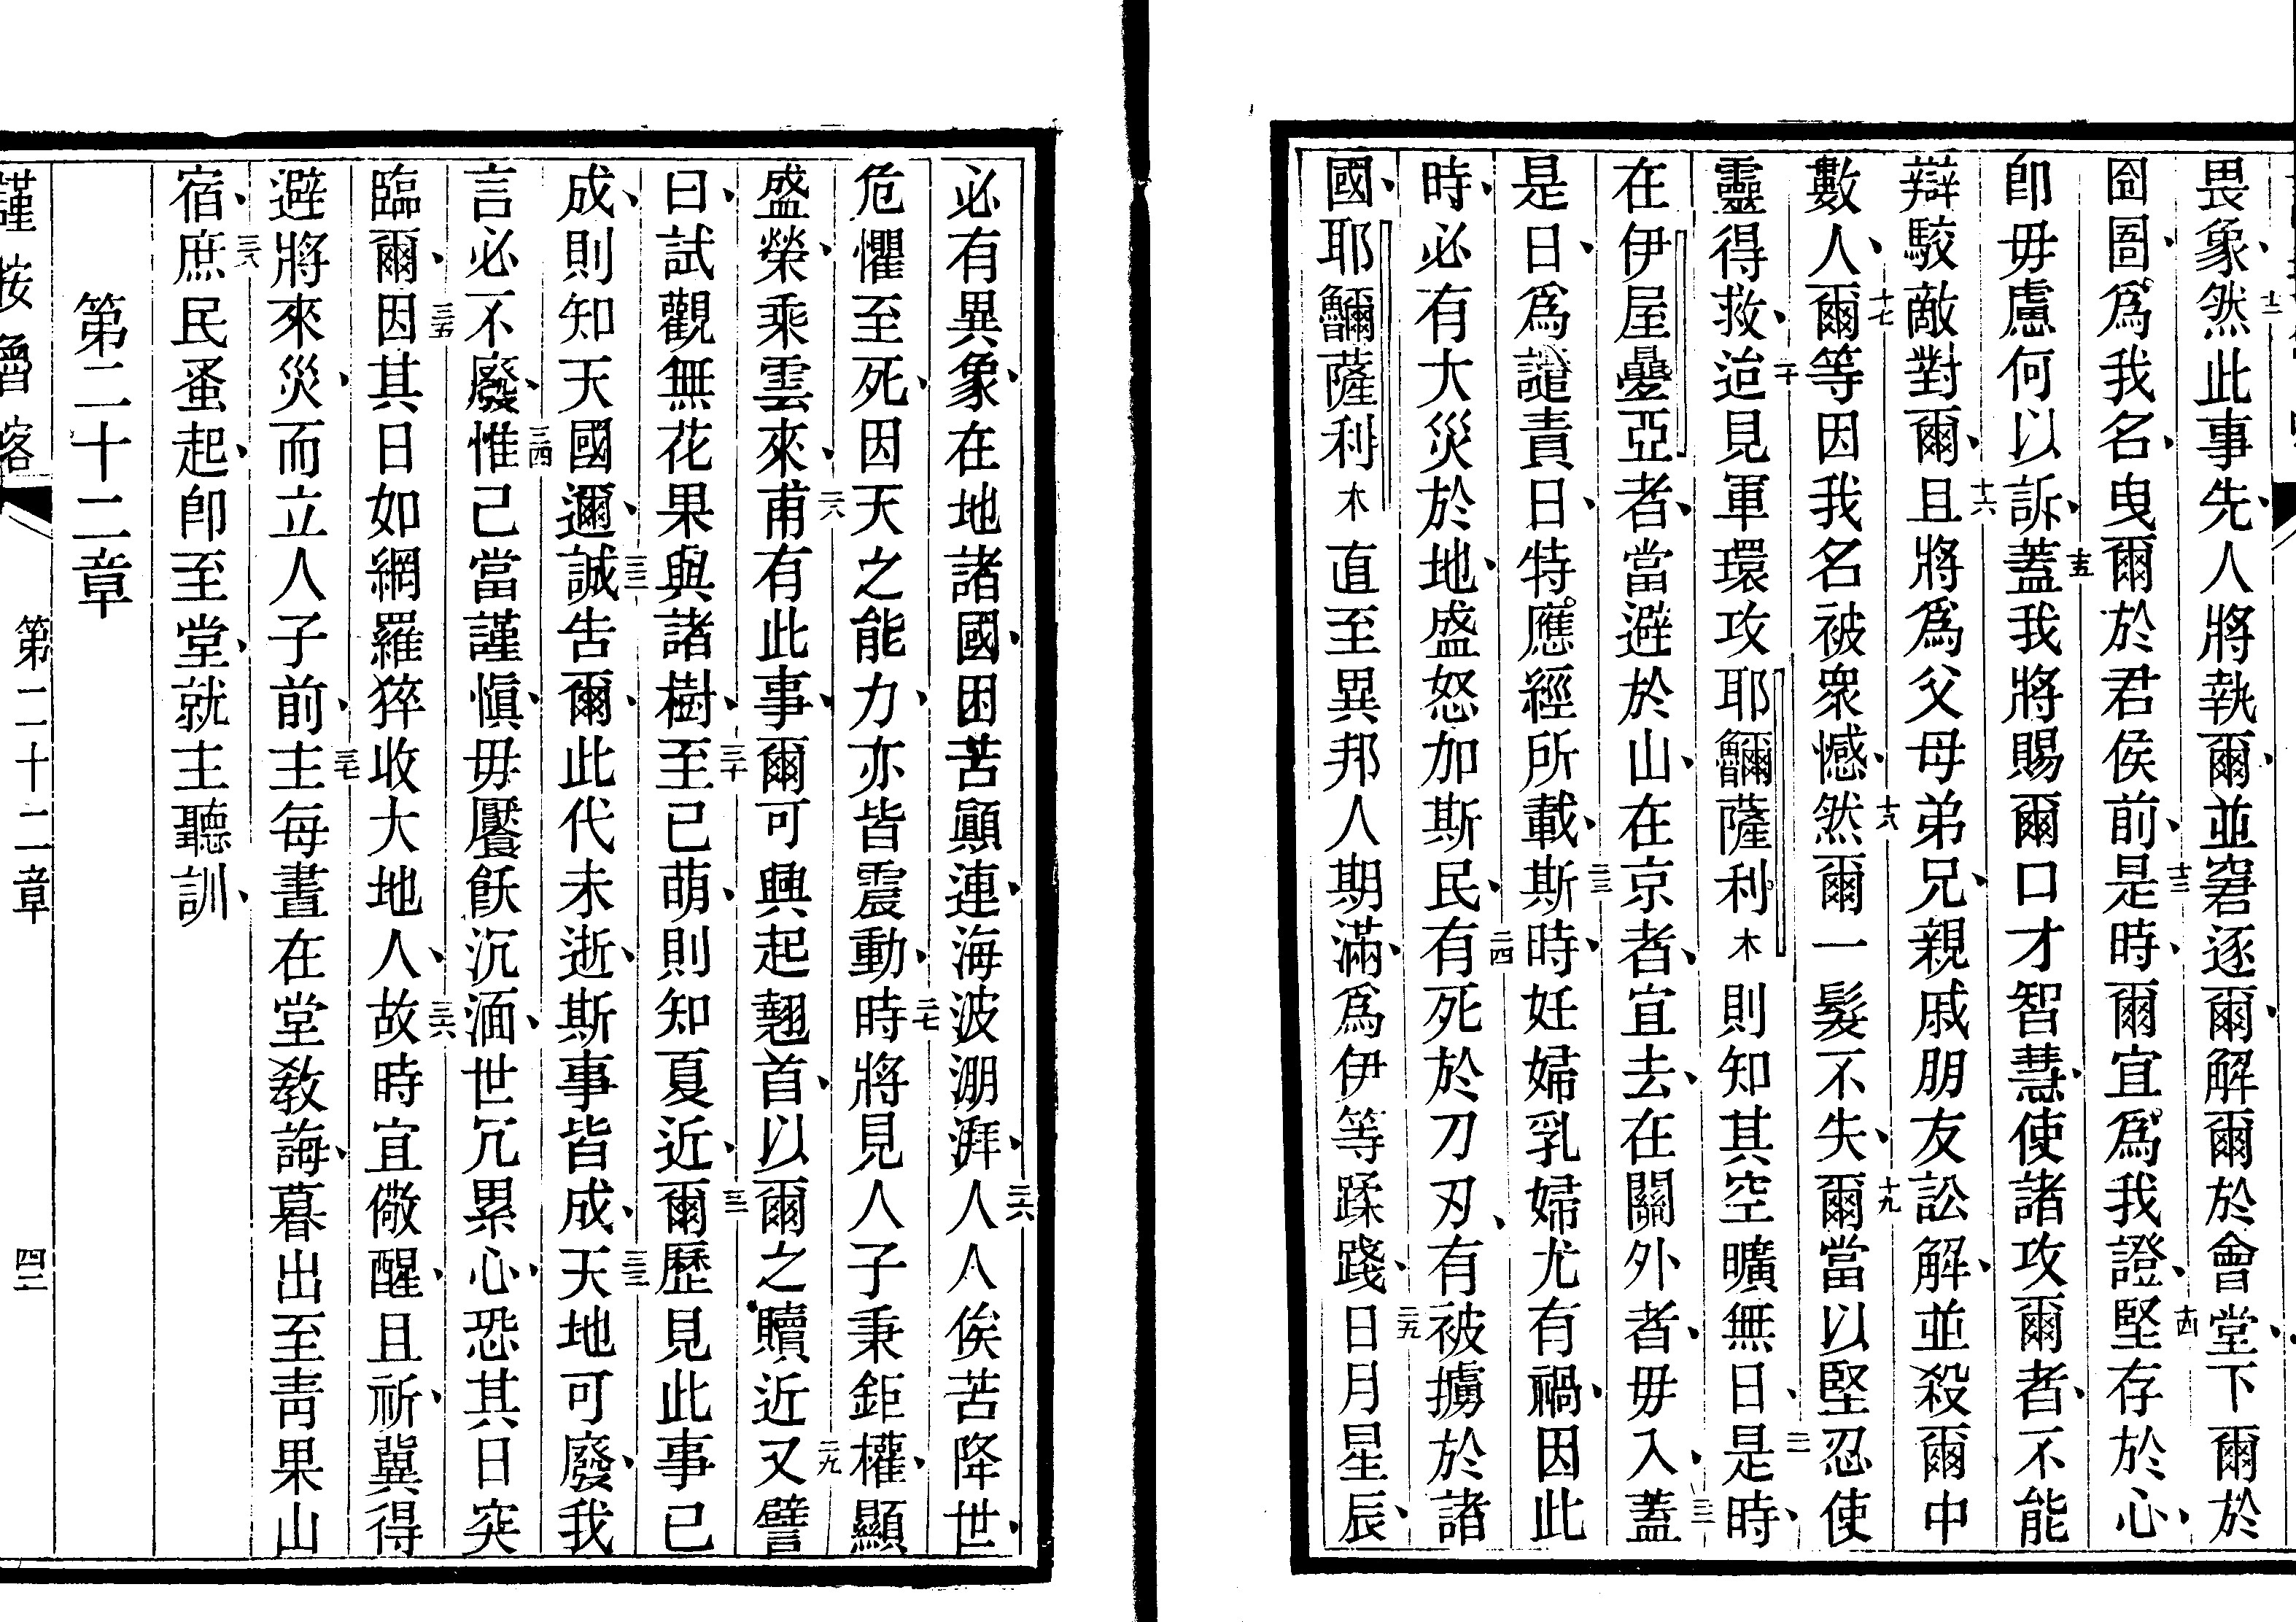 畏象、十二然此事先、人將執爾、並窘逐爾、解爾於會堂、下爾於
囹圄、爲我名、曳爾於君侯前、十三是時、爾宜爲我證、十四堅存於心、
即毋慮何以訴、十五蓋我將賜爾口才智慧、使諸攻爾者、不能
辯駁敵對爾、十六且將爲父母弟兄、親戚朋友訟解、並殺爾中
數人、十七爾等因我名被衆憾、十八然爾一髮不失、十九爾當以堅忍使
靈得救、二十迨見軍環攻耶薩利木則知其空曠無日、二一是時、
在伊屋亞者、當避於山、在京者、宜去、在關外者、毋入、二二蓋
是日、爲譴責日、特應經所載、二三斯時、妊婦乳婦尤有禍、因此
時、必有大災於地、盛怒加斯民、二四有死於刀刃、有被擄於諸
國、耶薩利木直至異邦人期滿、爲伊等蹂踐、二五日月星辰、
必有異象、在地諸國、困苦顚連、海波漰湃、二六人人俟苦降世、
危懼至死、因天之能力、亦皆震動、二七時將見人子秉鉅權、顯
盛榮、乘雲來、二八甫有此事、爾可興起翹首、以爾之贖近、二九又譬
曰、試觀無花果與諸樹、三十至已萌、則知夏近、三一爾歷見此事已
成、則知天國邇、三二誠告爾、此代未逝、斯事皆成、三三天地可廢、我
言必不廢、三四惟己當謹愼、毋饜飫沉湎、世冗累心、恐其日突
臨爾、三五因其日如網羅猝收大地人、三六故時宜儆醒、且祈、冀得
避將來災、而立人子前、三七主每晝在堂敎誨、暮出至靑果山
宿、三八庶民蚤起、即至堂、就主聽訓、
第二十二章
謹按魯喀
第二十二章
四二